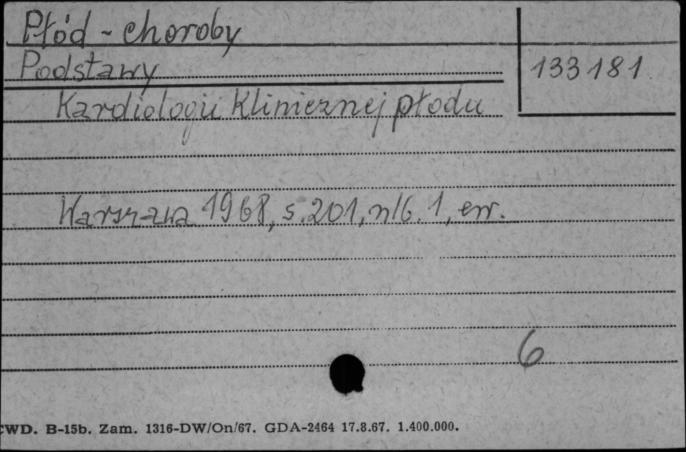 Płód - choroby
Podstawy
133181
Kardiologii Klinicznej płodu
Warszawa 1968, s. 201, nlb. 1, err.
6
CWD. B-15b. Zam. 1316-DW/On/67. GDA-2464 17.8.67. 1.400.000.